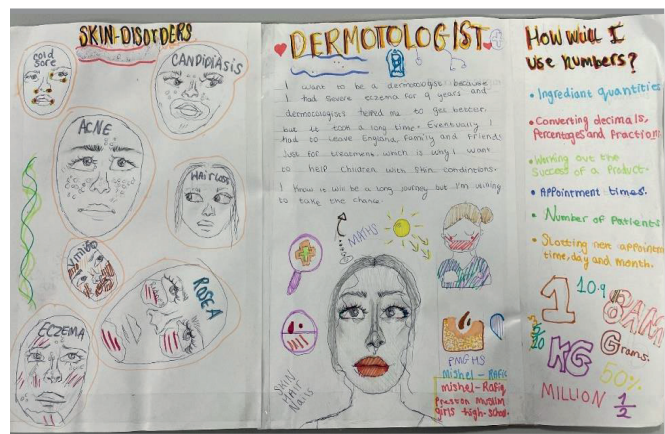 SKIN-DISORDERS
cold
sore
CANDIDIASIS
ACNE
HAIR LOSS
VITILIGO
ROSEA
ECZEMA
DERMOTOLOGIST
I want to be a dermatologist because
I had severe eczema for 9 years and
dermatologists helped me to get better.
but it took a long time. Eventually I
had to leave England, family and friends
Just for treatment which is why I want
to help children with skin conditions.
I know is will be a long journey but I'm willing
to take the chance.
MATHS
SKIN
HAIR
Nails
PMGHS
Mishel - Rafiq
mishel-Rafiq
preston muslim
girls high-school.
How will I
use numbers?
• Ingrediant quantities
• Converting decimals,
Percentages and Fractions
• Working out the
success of a product.
• Appointment times.
• Number of patients
• Slotting new appointm
time, day and month.
1
10.9
8AM
KG
Grams.
50%
MILLION
1/2